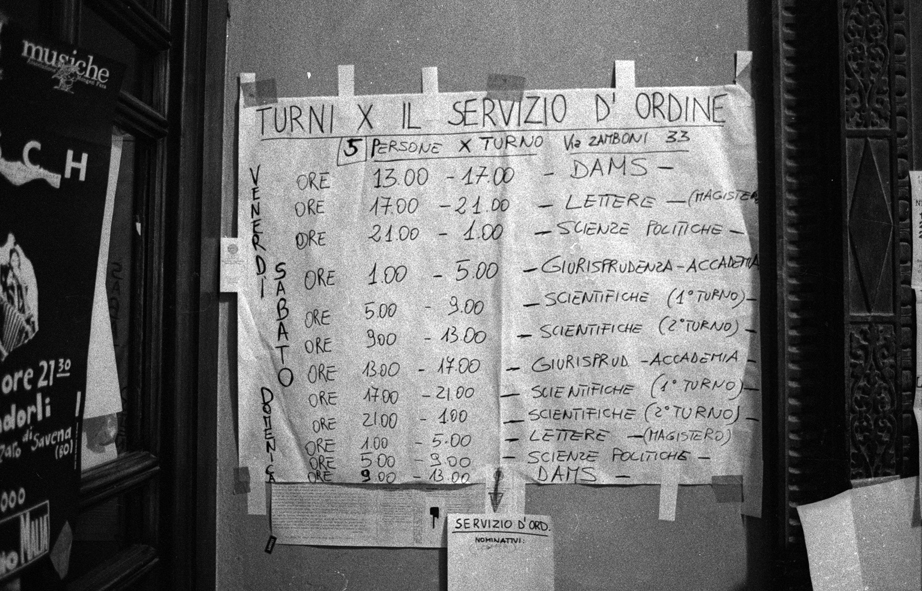 musiche
C H
ore 21 30
ndorli
di Savena
(BO)
000
MALIA
TURNI X IL SERVIZIO D'ORDINE
5 PERSONE X TURNO Via ZAMBONI 33
VENERDÌ
ORE 13.00 - 17.00 - DAMS -
ORE 17.00 - 21.00 - LETTERE - (MAGISTER
ORE 21.00 - 1.00 - SCIENZE POLITICHE -
SABATO
ORE 1.00 - 5.00 - GIURISPRUDENZA - ACCADEMIA
ORE 5.00 - 9.00 - SCIENTIFICHE (1° TURNO) -
ORE 9.00 - 13.00 - SCIENTIFICHE (2° TURNO) -
ORE 13.00 - 17.00 - GIURISPRUD - ACCADEMIA -
ORE 17.00 - 21.00 - SCIENTIFICHE (1° TURNO) -
ORE 21.00 - 1.00 - SCIENTIFICHE (2° TURNO) -
DOMENICA
ORE 1.00 - 5.00 - LETTERE - (MAGISTERO)
ORE 5.00 - 9.00 - SCIENZE POLITICHE -
ORE 9.00 - 13.00 - DAMS -
SERVIZIO D'ORD.
NOMINATIVI: